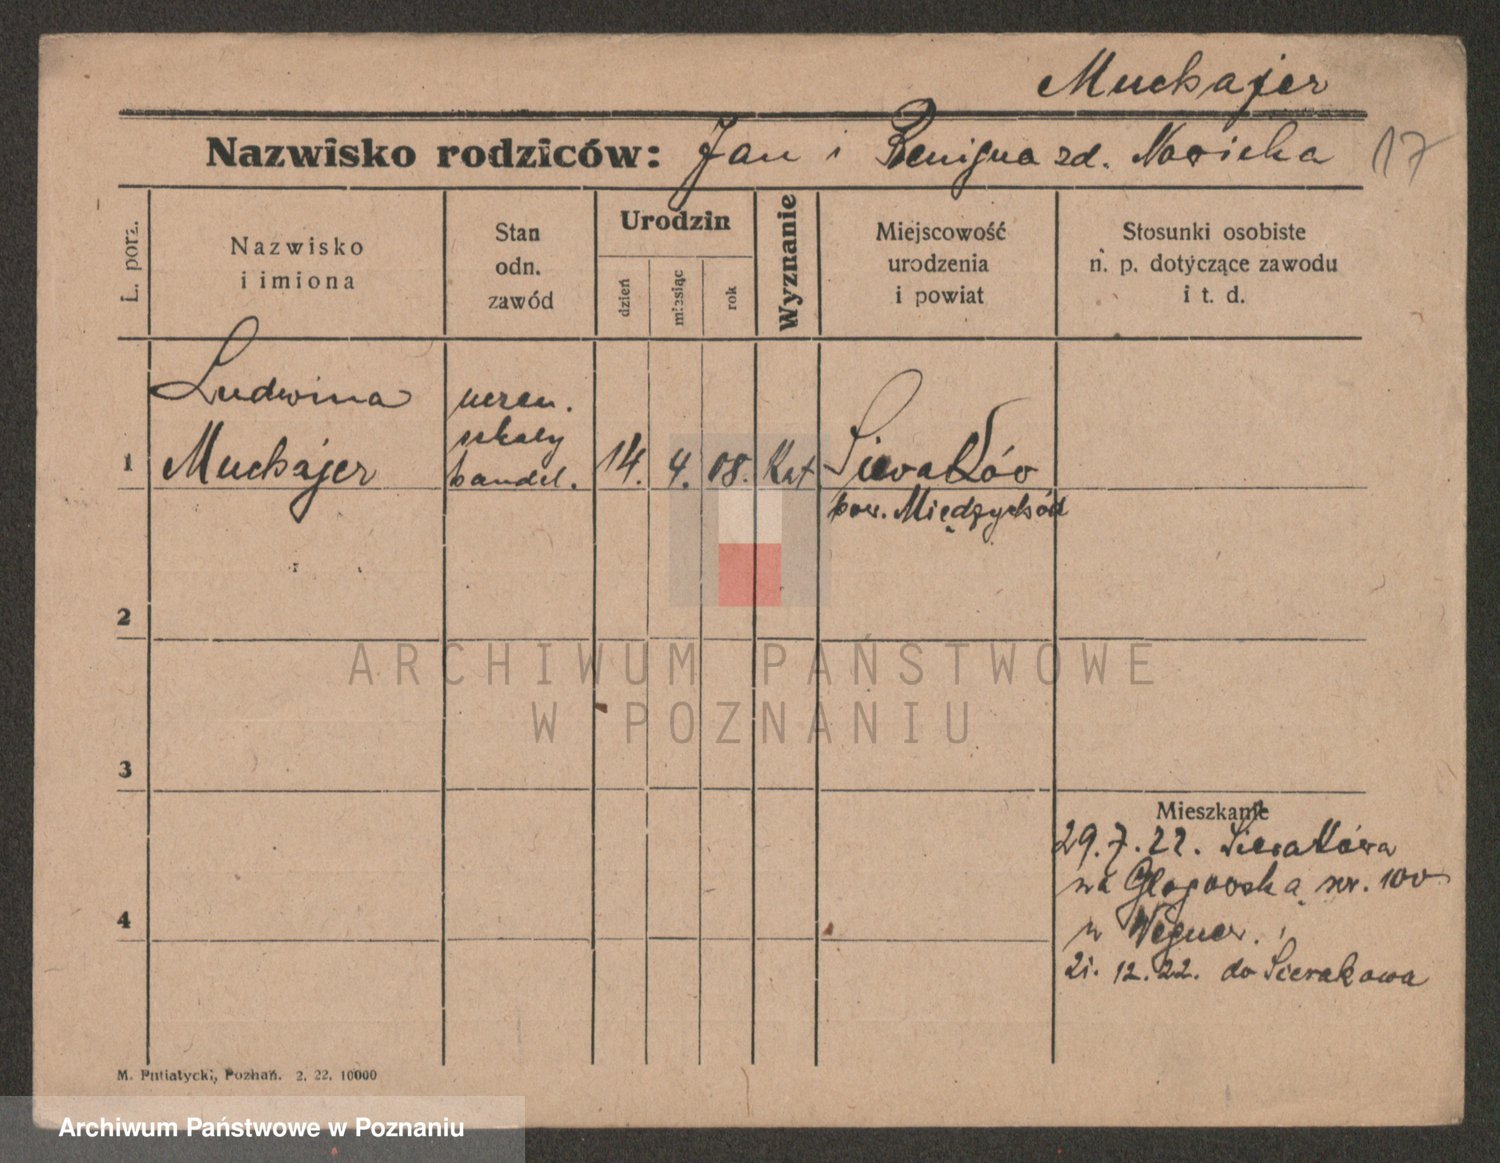 Muchajer
Nazwisko rodziców: Jan i Benigna zd. Nosicka
17
L. porz.
Nazwisko
i imiona
Stan
odn.
zawód
Urodzin
dzień
miesiąc
rok
Wyznanie
Miejscowość
urodzenia
i powiat
Stosunki osobiste
n. p. dotyczące zawodu
i t. d.
1
Ludwina
Muchajer
uczen.
szkoły
handel.
14.
4.
08.
Kat
Sieraków
pow. Międzychód
2
ARCHIWUM PAŃSTWOWE
W POZNANIU
3
Mieszkanie
29.7.22. Sierakówa
na Głogowską nr. 100
u Wegner.
21.12.22. do Sierakowa
4
M. Putiatycki, Poznań. 2. 22. 10000
Archiwum Państwowe w Poznaniu